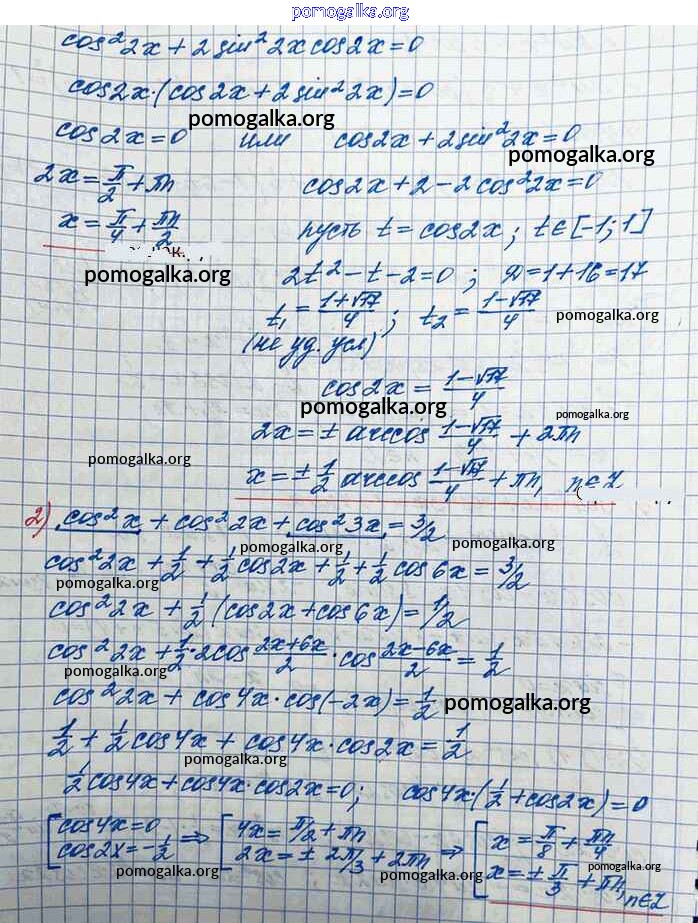 pomogalka.org
cos²2x + 2sin²2x cos2x = 0
cos2x·(cos2x + 2sin²2x) = 0
pomogalka.org
cos2x = 0 или cos2x + 2sin²2x = 0
pomogalka.org
2x = π/2 + πn cos2x + 2 - 2cos²2x = 0
x = π/4 + πn/2 пусть t = cos2x; t∈[-1; 1]
pomogalka.org
2t² - t - 2 = 0; D = 1 + 16 = 17
t₁ = (1+√17)/4; t₂ = (1-√17)/4
pomogalka.org
(не уд. усл)
cos2x = (1-√17)/4
pomogalka.org
pomogalka.org
2x = ± arccos (1-√17)/4 + 2πn
pomogalka.org
x = ± 1/2 arccos (1-√17)/4 + πn, n∈Z
2) cos²x + cos²2x + cos²3x = 3/2
pomogalka.org
pomogalka.org
cos²2x + 1/2 + 1/2 cos2x + 1/2 + 1/2 cos6x = 3/2
pomogalka.org
cos²2x + 1/2 (cos2x + cos6x) = 1/2
cos²2x + 1/2·2cos (2x+6x)/2 · cos (2x-6x)/2 = 1/2
pomogalka.org
cos²2x + cos4x·cos(-2x) = 1/2
pomogalka.org
1/2 + 1/2 cos4x + cos4x·cos2x = 1/2
pomogalka.org
1/2 cos4x + cos4x·cos2x = 0; cos4x·(1/2 + cos2x) = 0
[cos4x = 0 ⇒ [4x = π/2 + πn ⇒ [x = π/8 + πn/4
cos2x = -1/2 2x = ± 2π/3 + 2πn x = ± π/3 + πn, n∈Z
pomogalka.org
pomogalka.org
pomogalka.org